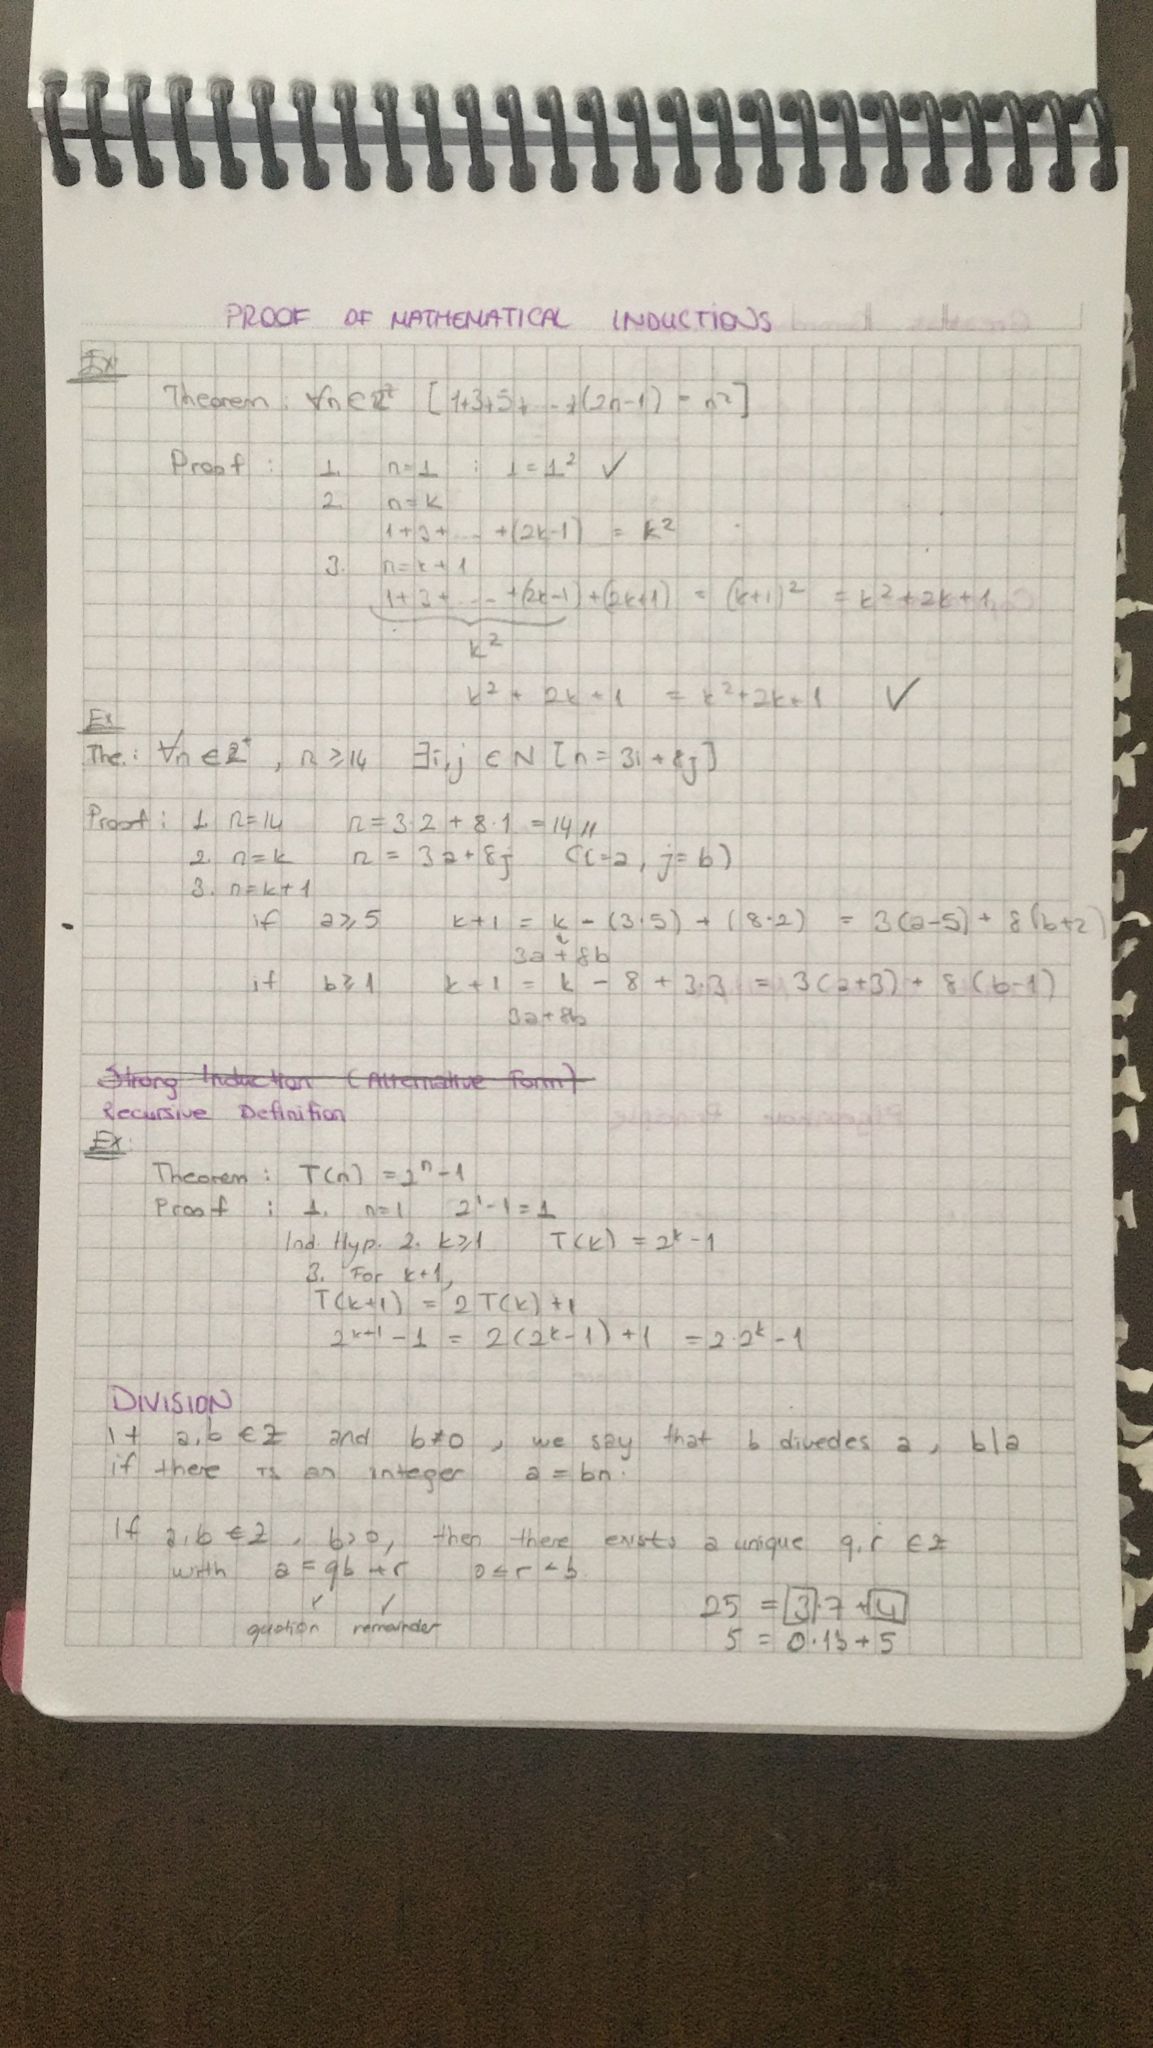 PROOF OF MATHEMATICAL INDUCTIONS
Ex
Theorem : ∀n∈Z⁺ [1+3+5+ ... +(2n-1) = n²]
Proof : 1. n=1 : 1=1² ✓
2. n=k
1+3+ ... +(2k-1) = k²
3. n=k+1
1+3+ ... +(2k-1)+(2k+1) = (k+1)² = k²+2k+1
k²
k² + 2k+1 = k²+2k+1 ✓
Ex
The.: ∀n∈Z⁺, n≥14 ∃i,j ∈N [n=3i+8j]
Proof : 1. n=14 n=3·2+8·1 =14//
2. n=k n = 3a+8j (i=a, j=b)
3. n=k+1
if a≥5 k+1 = k-(3·5)+(8·2) = 3(a-5)+8(b+2)
3a+8b
if b≥1 k+1 = k-8+3·3 = 3(a+3)+8(b-1)
3a+8b
Strong Induction (Alternative Form)
Recursive Definition
Ex:
Theorem : T(n) = 2ⁿ-1
Proof : 1. n=1 2¹-1=1
Ind. Hyp. 2. k≥1 T(k) = 2ᵏ-1
3. For k+1,
T(k+1) = 2T(k)+1
2ᵏ⁺¹-1 = 2(2ᵏ-1)+1 = 2·2ᵏ-1
DIVISION
If a,b ∈Z and b≠0, we say that b divedes a, b|a
if there is an integer a=bn.
If a,b ∈Z, b>0, then there exists a unique q,r ∈Z
with a=qb+r 0≤r<b
quotion remainder
25 = 3·7+4
5 = 0·13+5